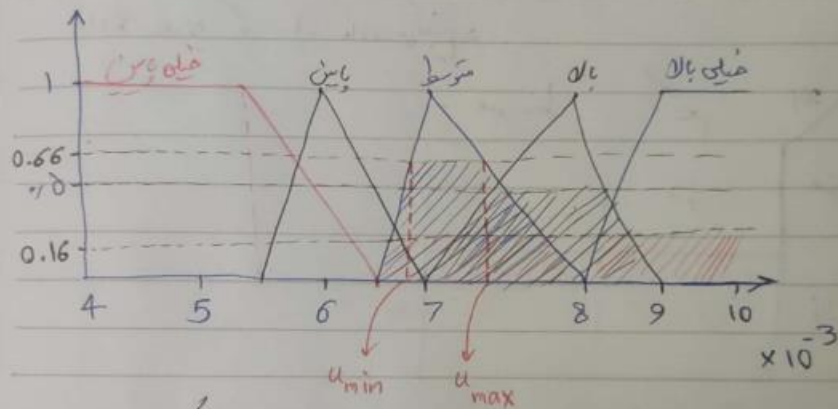 خیلی پایین پایین متوسط بالا خیلی بالا
۱
0.66
۰٫۵
0.16
4 5 6 7 8 9 10
×10⁻³
u min u max